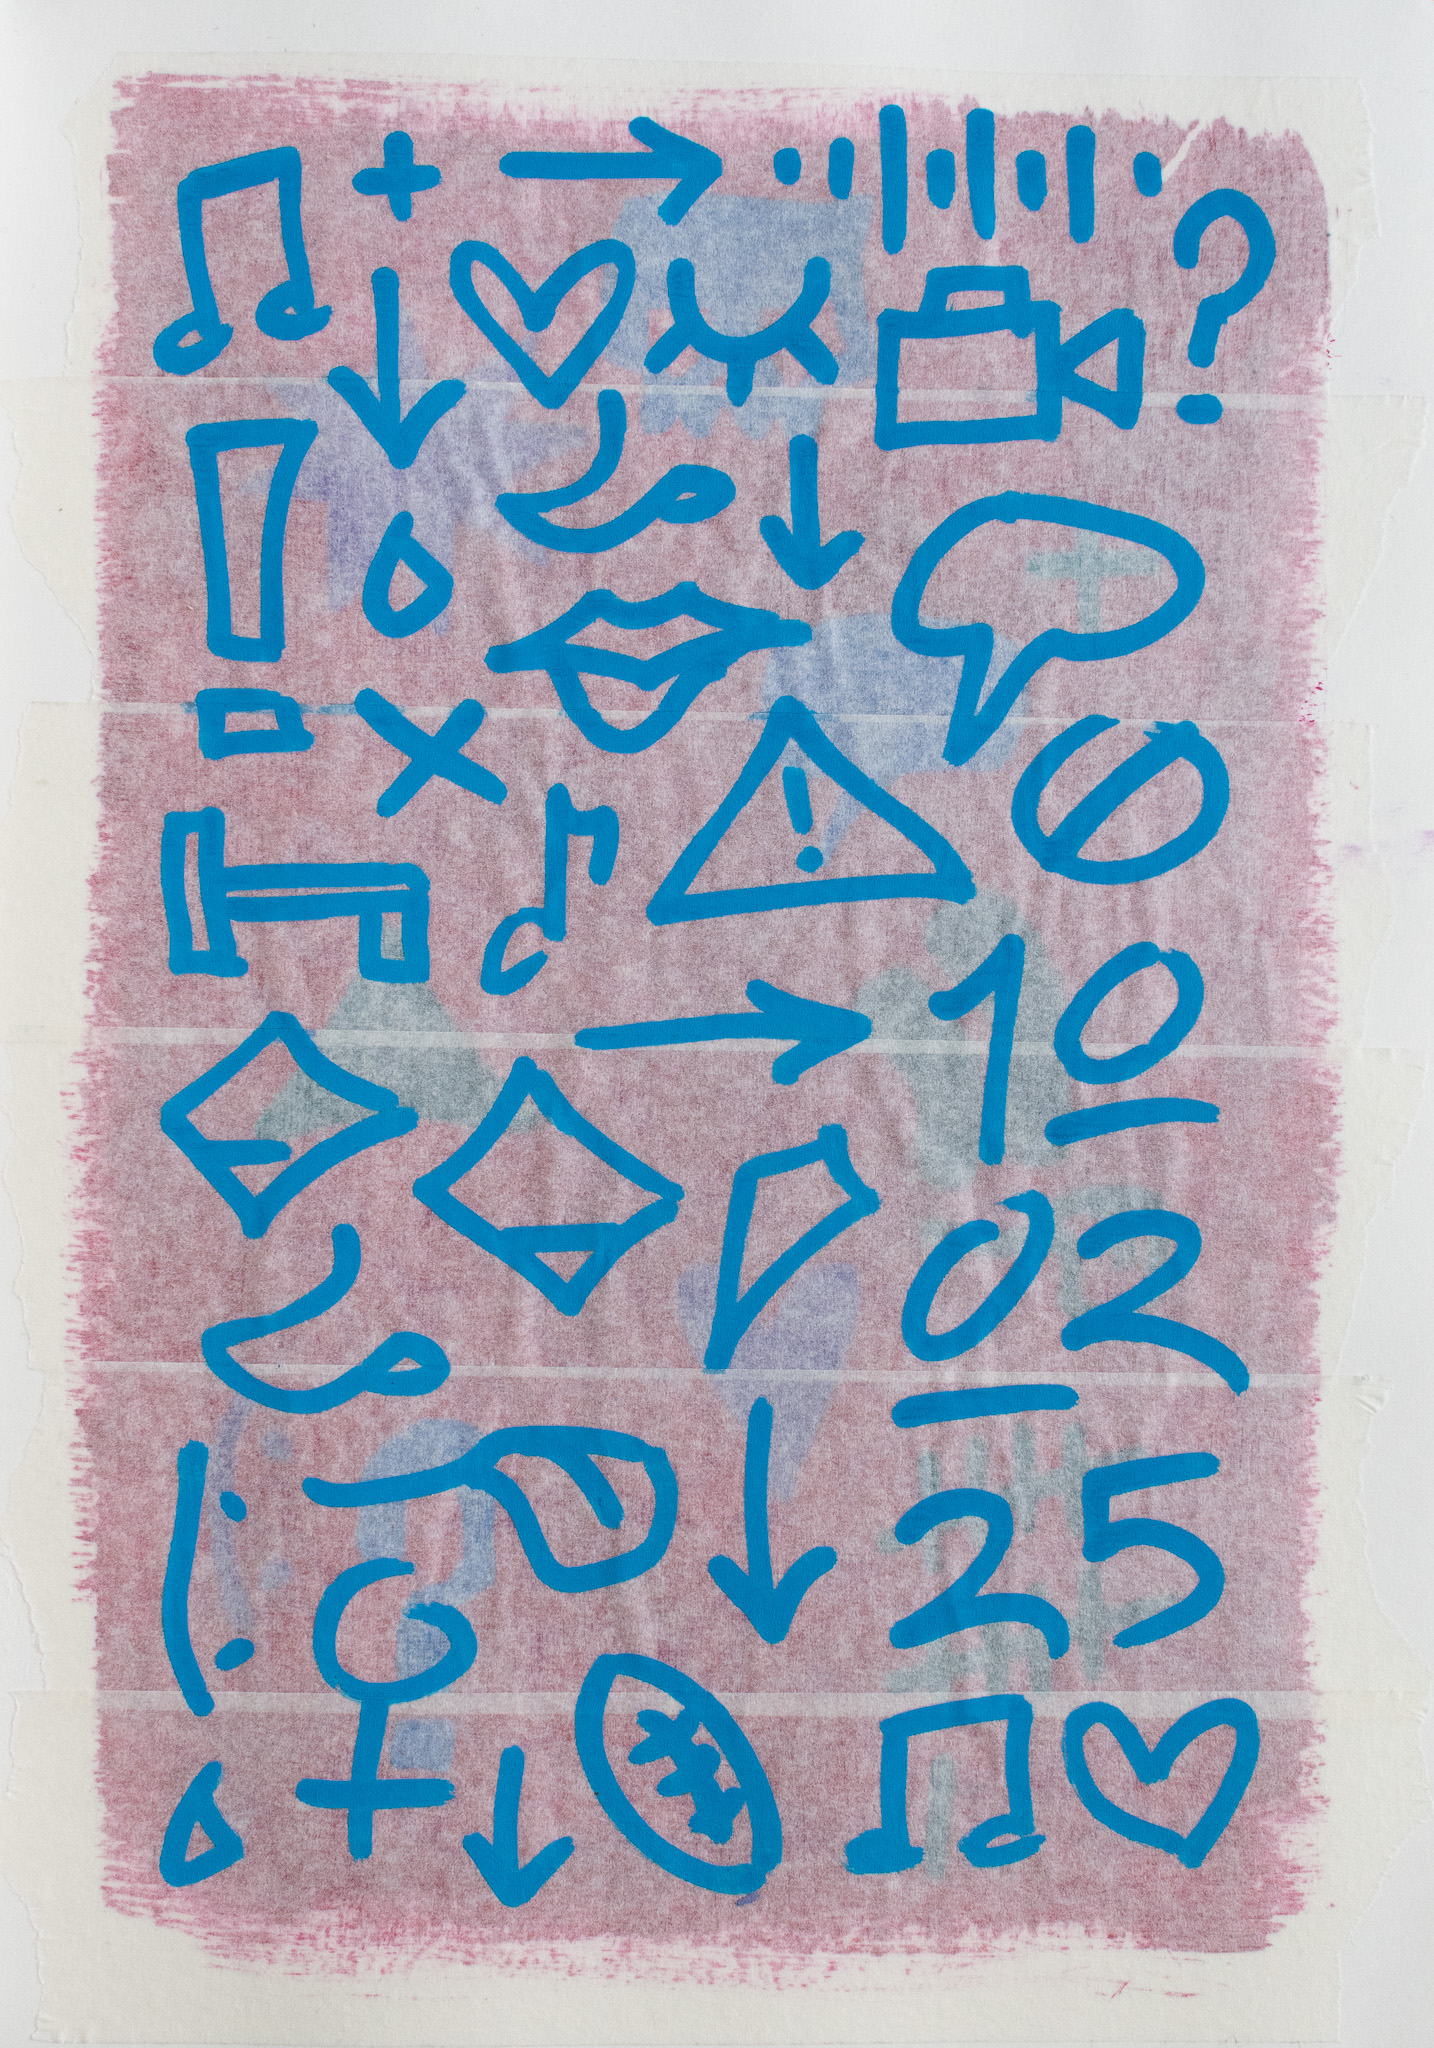 +
?
!
10
02
25